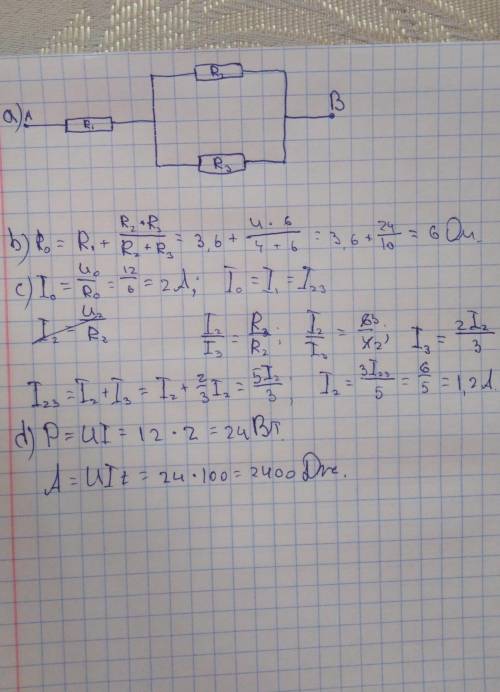 a) A R₁ R₂ R₃ B
b) R₀ = R₁ + (R₂ · R₃)/(R₂ + R₃) = 3,6 + (4 · 6)/(4 + 6) = 3,6 + 24/10 = 6 Ом.
c) I₀ = U₀/R₀ = 12/6 = 2 A; I₀ = I₁ = I₂₃
I₂ = U₂/R₂ I₂/I₃ = R₃/R₂; I₂/I₃ = I₃ = 2I₂/3
I₂₃ = I₂ + I₃ = I₂ + 2/3 I₂ = 5I₂/3; I₂ = 3I₂₃/5 = 6/5 = 1,2 A.
d) P = UI = 12 · 2 = 24 Вт.
A = UIt = 24 · 100 = 2400 Dж.